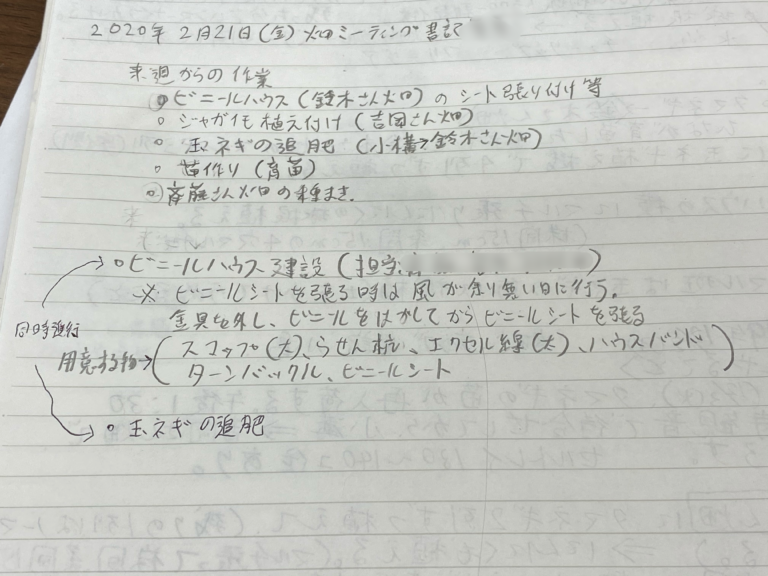 2020年 2月21日(金) 畑ミーティング 書記
来週からの作業
◦ビニールハウス(鈴木さん畑)の シート張り付け等
◦ジャガイモ植え付け(吉岡さん畑)
◦玉ネギの追肥 (小構→鈴木さん畑)
◦苗作り(育苗)
◦斉藤さん畑の種まき.
◦ビニールハウス建設(担当:
※ ビニールシートを張る時は 風が余り無い日に行う。
金具を外し、ビニールをはがしてから ビニールシートを張る
同時進行
用意する物→(スコップ(大)、らせん杭、エクセル線(太)、ハウスバンド
ターンバックル、ビニールシート)
◦玉ネギの追肥